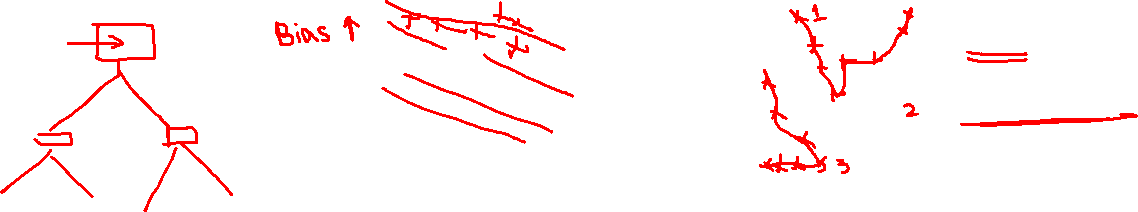 Bias ↑
1
2
3